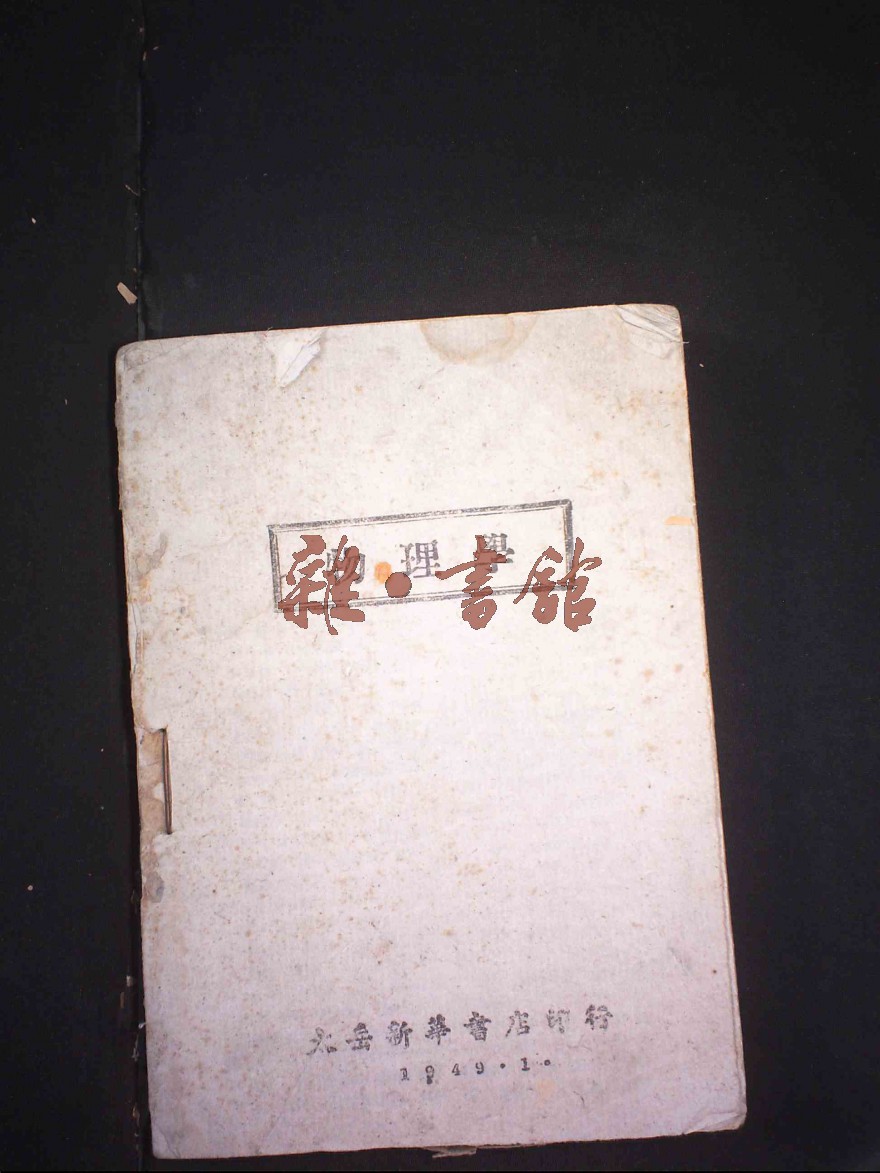 物理學
雜·書館
太岳新華書店印行
1949.1.